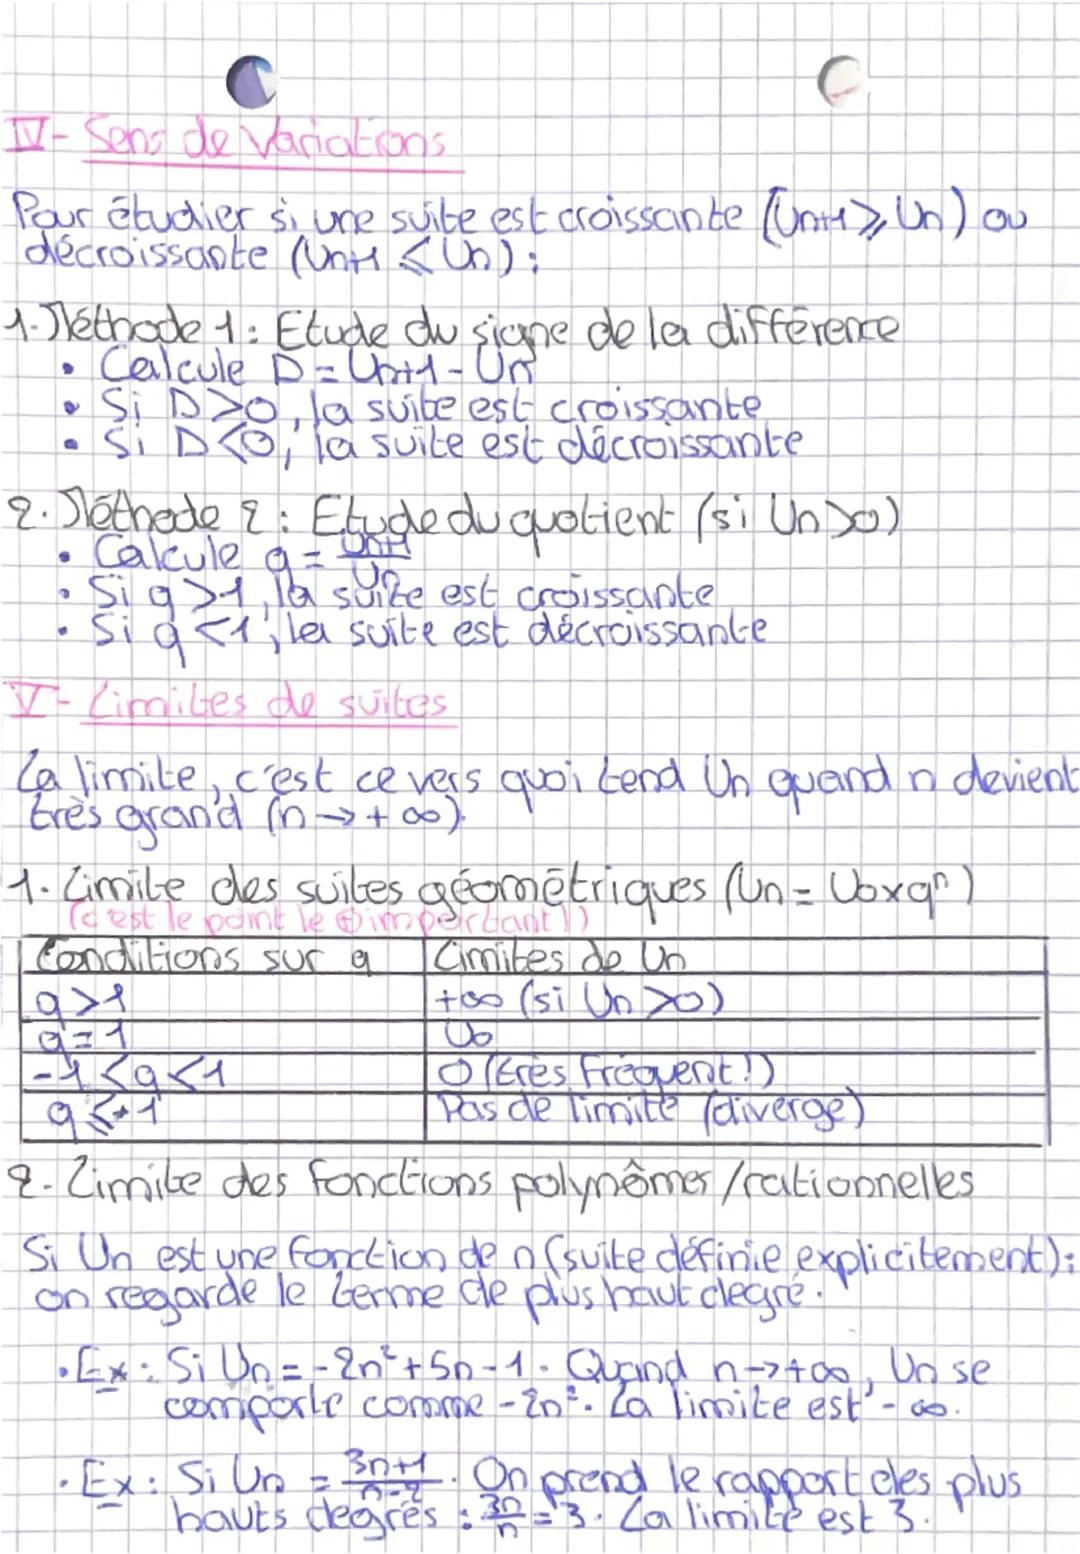 IV- Sens de Variations
Pour étudier si une suite est croissante (Un+1 ⩾ Un) ou
décroissante (Un+1 ⩽ Un) :
1. Méthode 1 : Etude du signe de la différence
• Calcule D = Un+1 - Un
• Si D>0, la suite est croissante
• Si D<0, la suite est décroissante
2. Méthode 2 : Etude du quotient (si Un>0)
• Calcule q = Un+1/Un
• Si q>1, la suite est croissante
• Si q<1, la suite est décroissante
V- Limites de suites
La limite, c'est ce vers quoi tend Un quand n devient
très grand (n → + ∞).
1. Limite des suites géométriques (Un = U0×qⁿ)
(c'est le point le ⊕ important!)
Conditions sur q | Limites de Un
q>1 | +∞ (si Un >0)
q=1 | U0
-1<q<1 | 0 (très fréquent!)
q⩽-1 | Pas de limite (diverge)
2. Limite des fonctions polynômes/rationnelles
Si Un est une fonction de n (suite définie explicitement) :
on regarde le terme de plus haut degré.
• Ex : Si Un = -2n²+5n-1. Quand n→+∞, Un se
comporte comme -2n². La limite est -∞.
• Ex : Si Un = 3n+1/n-2. On prend le rapport des plus
hauts degrés : 3n/n = 3. La limite est 3.